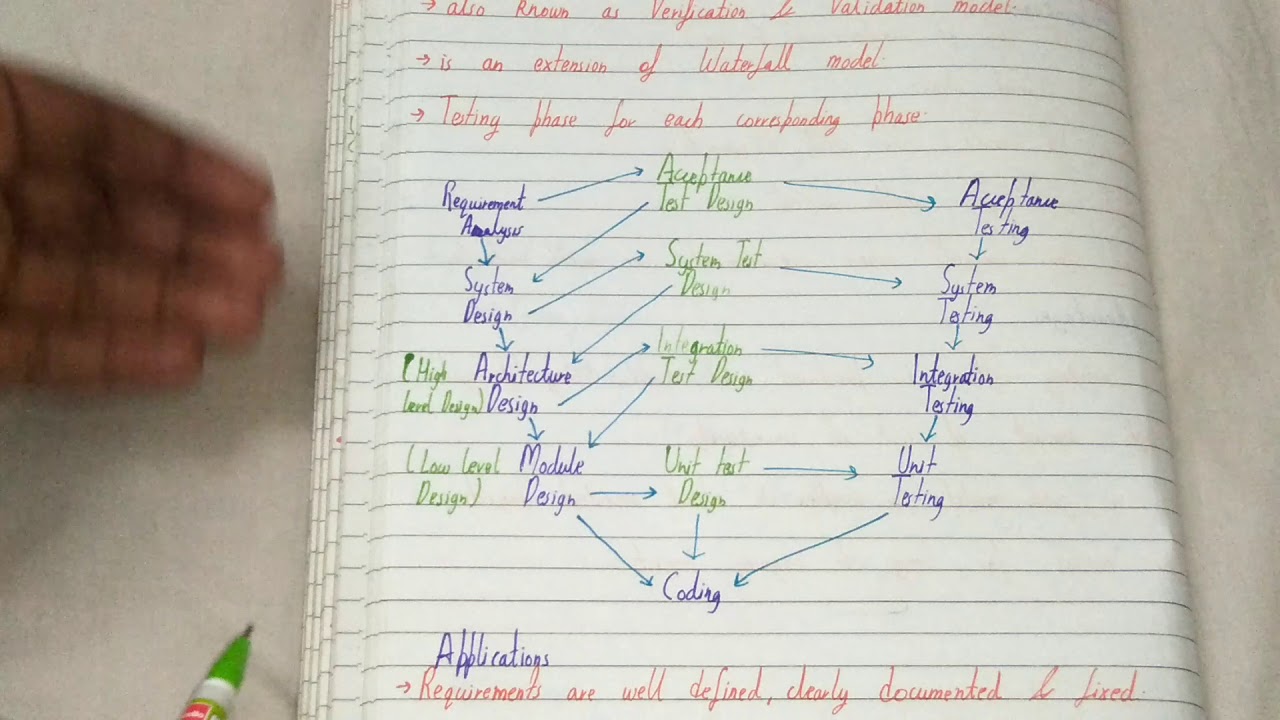 → also known as Verification & Validation model.
→ is an extension of Waterfall model.
→ Testing phase for each corresponding phase.
Acceptance
Test Design
Requirement
Analysis
Acceptance
Testing
System Test
Design
System
Design
System
Testing
Integration
Test Design
(High Architecture
level Design) Design
Integration
Testing
(Low level Module
Design) Design
Unit test
Design
Unit
Testing
Coding
Applications
→ Requirements are well defined, clearly documented & fixed.